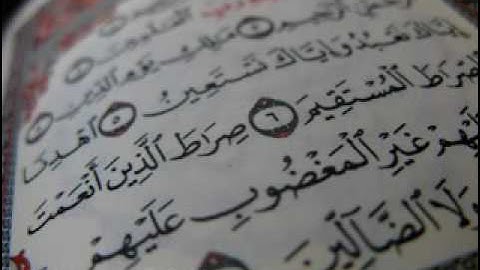 الرَّحْمَٰنِ الرَّحِيمِ ٣ مَٰلِكِ يَوْمِ الدِّينِ ٤
إِيَّاكَ نَعْبُدُ وَإِيَّاكَ نَسْتَعِينُ ٥ اهْدِنَا
الصِّرَاطَ الْمُسْتَقِيمَ ٦ صِرَاطَ الَّذِينَ أَنْعَمْتَ
عَلَيْهِمْ غَيْرِ الْمَغْضُوبِ عَلَيْهِمْ
وَلَا الضَّالِّينَ